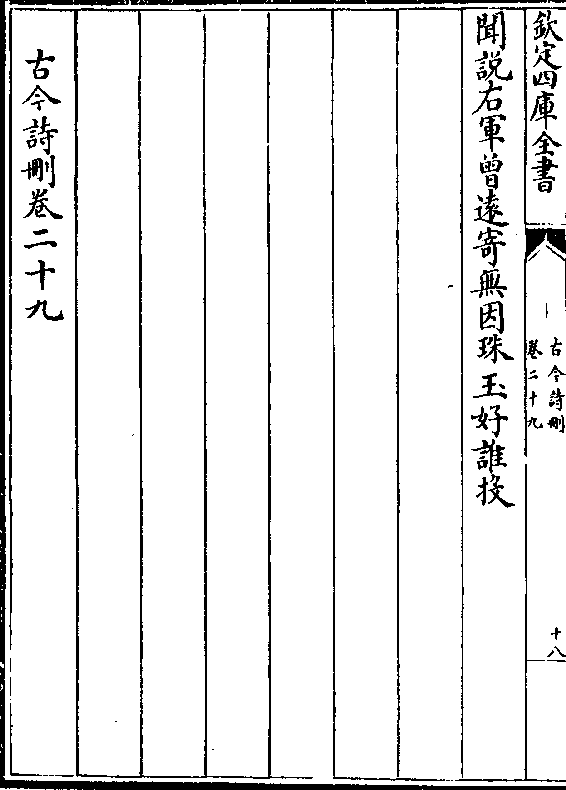 欽定四庫全書
古今詩刪
卷二十九
十八
聞説右軍曾遠寄無因珠玉好誰投
古今詩刪卷二十九